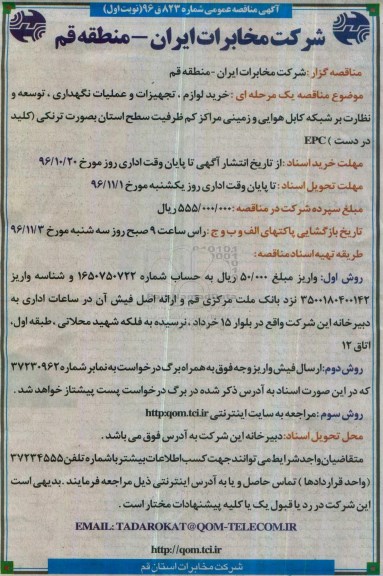 آگهی مناقصه عمومی شماره ۸۲۳ ق ۹۶ (نوبت اول)
شرکت مخابرات ایران – منطقه قم
مناقصه گزار : شرکت مخابرات ایران - منطقه قم
موضوع مناقصه یک مرحله ای : خرید لوازم ، تجهیزات و عملیات نگهداری ، توسعه و
نظارت بر شبکه کابل هوایی و زمینی مراکز کم ظرفیت سطح استان بصورت ترنکی (کلید
در دست ) EPC
مهلت خرید اسناد : از تاریخ انتشار آگهی تا پایان وقت اداری روز مورخ ۹۶/۱۰/۲۰
مهلت تحویل اسناد : تا پایان وقت اداری روز یکشنبه مورخ ۹۶/۱۱/۱
مبلغ سپرده شرکت در مناقصه : ۵۵۵/۰۰۰/۰۰۰ ریال
تاریخ بازگشایی پاکتهای الف و ب و ج : راس ساعت ۹ صبح روز سه شنبه مورخ ۹۶/۱۱/۳
طریقه تهیه اسناد مناقصه :
روش اول: واریز مبلغ ۵۰/۰۰۰ ریال به حساب شماره ۱۶۵۰۷۵۰۷۲۲ و شناسه واریز
۳۵۰۰۱۸۰۴۰۰۱۴۲ نزد بانک ملت مرکزی قم و ارائه اصل فیش آن در ساعات اداری به
دبیرخانه این شرکت واقع در بلوار ۱۵ خرداد ، نرسیده به فلکه شهید محلاتی ، طبقه اول،
اتاق ۱۲
روش دوم: ارسال فیش واریز وجه فوق به همراه برگ درخواست به نمابر شماره ۳۷۲۳۰۹۶۲
که در این صورت اسناد به آدرس ذکر شده در برگ درخواست پست پیشتاز خواهد شد .
روش سوم : مراجعه به سایت اینترنتی http:qom.tci.ir
محل تحویل اسناد: دبیرخانه این شرکت به آدرس فوق می باشد .
متقاضیان واجد شرایط می توانند جهت کسب اطلاعات بیشتر با شماره تلفن ۳۷۲۳۴۵۵۵
(واحد قراردادها ) تماس حاصل و یا به آدرس اینترنتی ذیل مراجعه فرمایند . بدیهی است
این شرکت در رد یا قبول یک یا کلیه پیشنهادات مختار است .
EMAIL: TADAROKAT@QOM-TELECOM.IR
http://qom.tci.ir
شرکت مخابرات استان قم